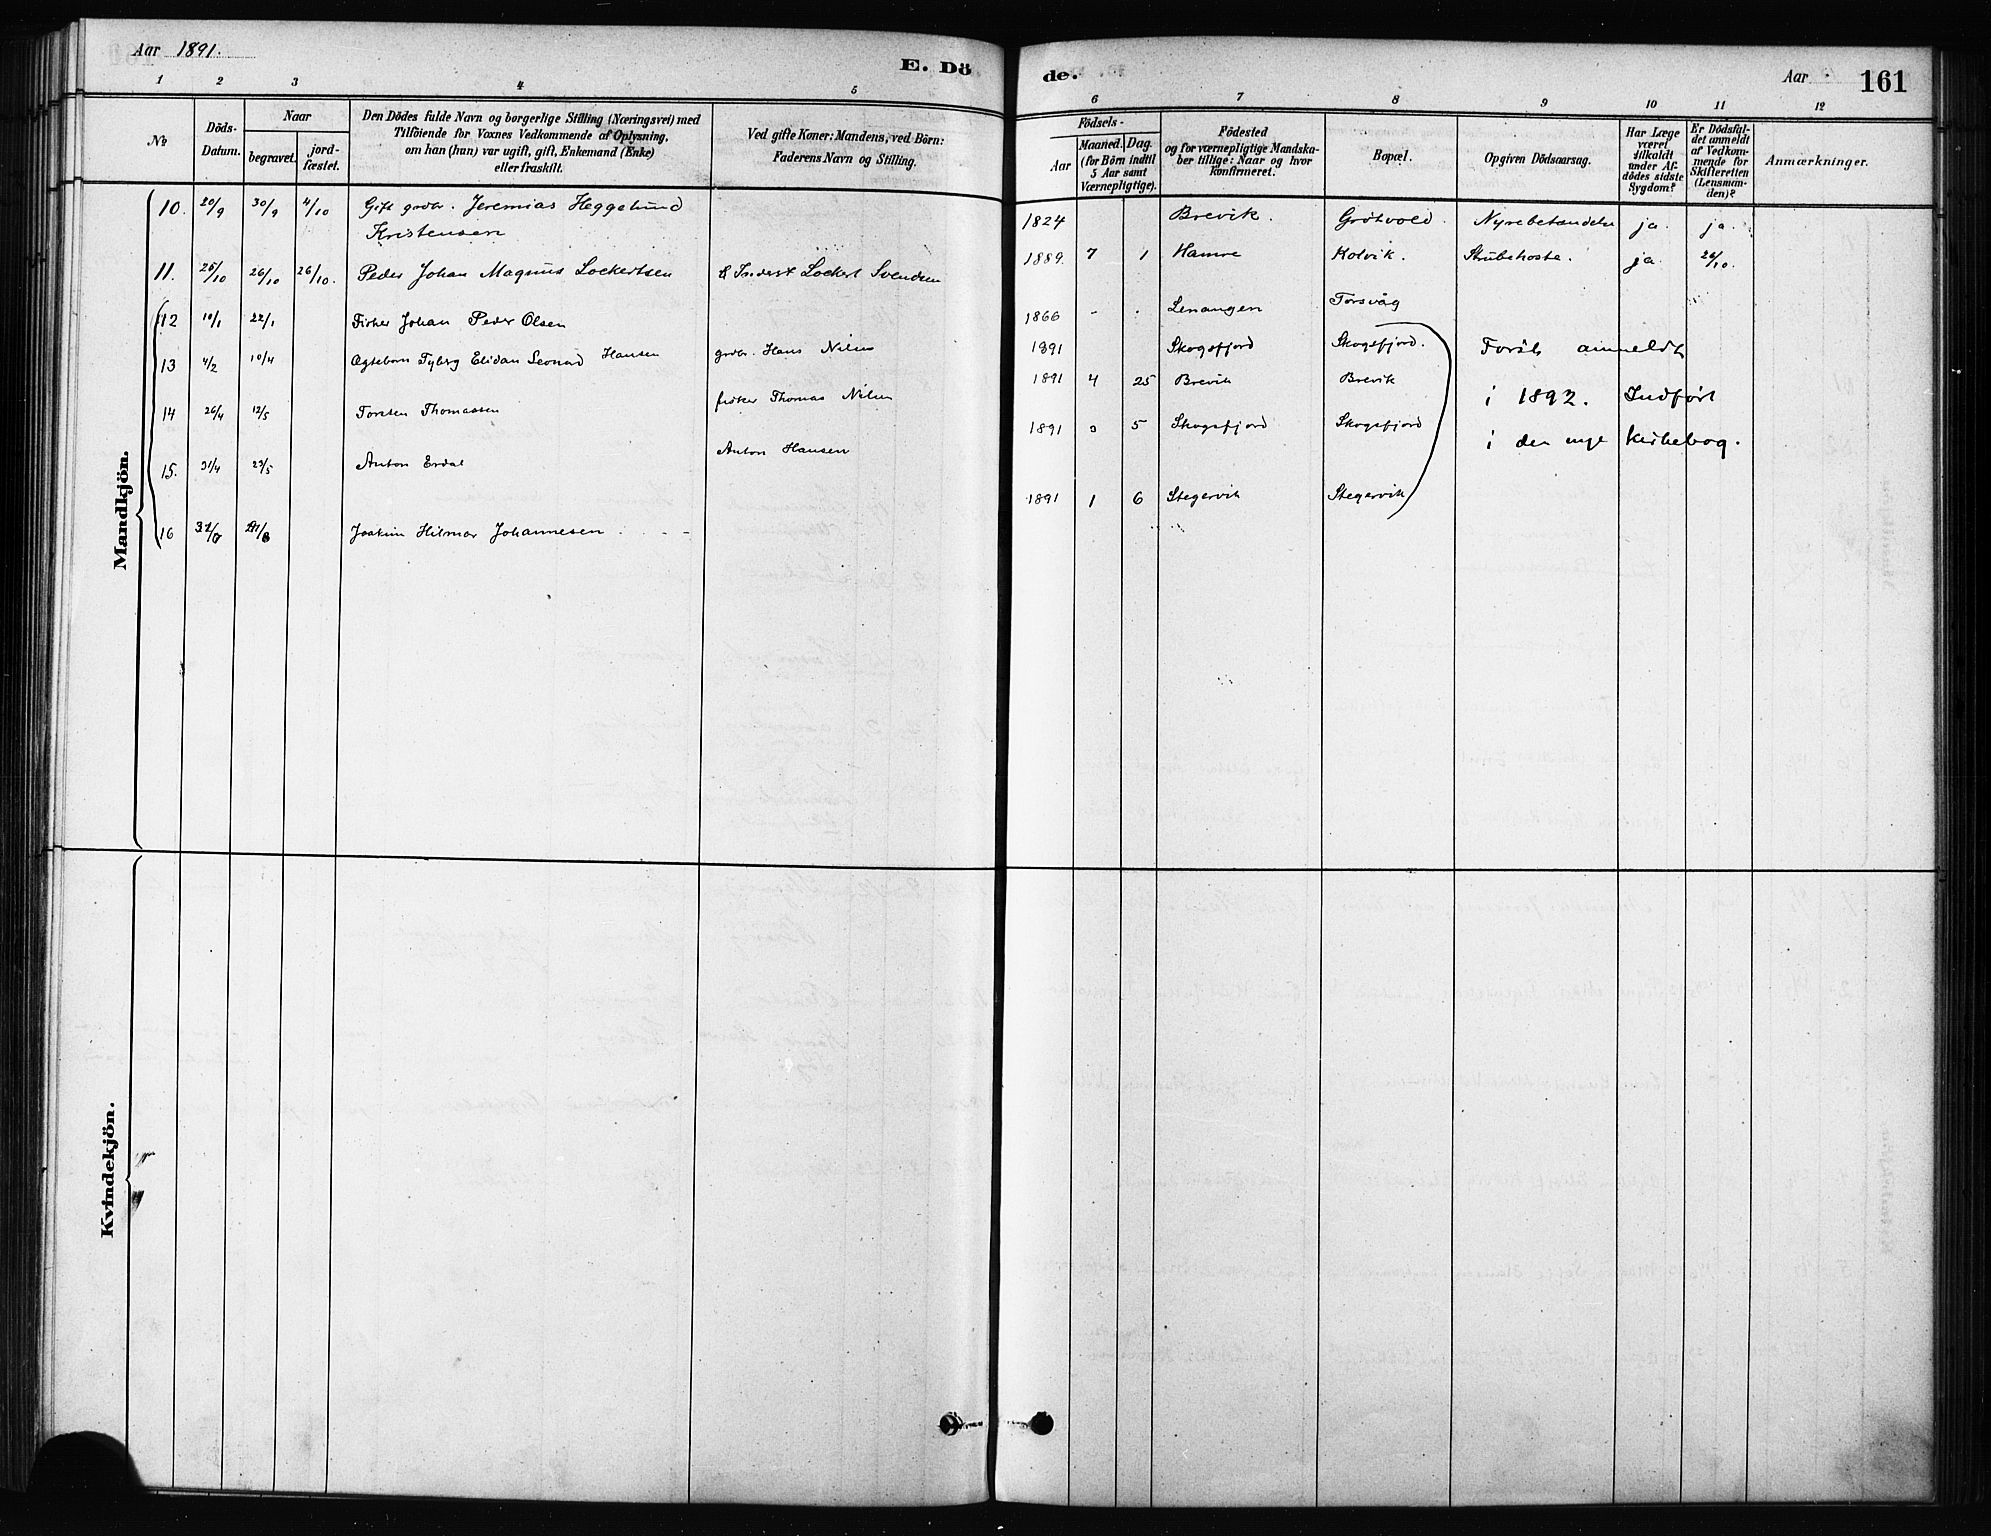 Aar 1891.
E. Dö
de.
Aar
161
1 2 3 4 5
6 7 8 9 10 11 12
№
Döds-
Datum.
Naar
begravet.
jord-
fæstet.
Den Dödes fulde Navn og borgerlige Stilling (Næringsvei) med
Tilföiende for Voxnes Vedkommende af Oplysning,
om han (hun) var ugift, gift, Enkemand (Enke)
eller fraskilt.
Ved gifte Koner: Mandens, ved Börn:
Faderens Navn og Stilling.
Födsels-
Aar
Maaned. Dag.
(for Börn indtil
5 Aar samt
Værnepligtige).
Födested
og for værnepligtige Mandska-
ber tillige: Naar og hvor
konfirmeret.
Bopæl.
Opgiven Dödsaarsag.
Har Læge
været
tilkaldt
under Af-
dödes sidste
Sygdom?
Er Dödsfal-
det anmeldt
af Vedkom-
mende for
Skifteretten
(Lensman-
den)?
Anmærkninger.
Mandkjön.
10. 20/9 30/9 4/10 Gift grdbr. Jeremias Heggelund
Kristensen
1824 Brevik. Grötvold. Nyrebetændelse ja. ja.
11. 25/10 26/10 26/10. Peder Johan Magnus Lockertsen Lockert Svendsen
1889. 7 1 Hamre Kolvik. Strubehoste. ja. 26/10.
12 10/1 22/1 Fisker Johan Peder Olsen
1866 - . Lenangen Torsvåg
13 4/2 10/4 Ægtebarn Tyberg Elidan Leonard Hansen grdbr. Hans Nilsen
1891 Skogsfjord Skogsfjord.
14 26/4 12/5 Torsten Thomassen fisker Thomas Nilsen
1891 4 25 Brevik Brevik
15. 31/4 23/5 Anton Erdal Anton Hansen
1891 5 Skogsfjord Skogsfjord
16 Joakim Hilmar Johannesen - -
1891 1 6 Stegervik Stegervik
Först anmeldt
i 1892. Indført
i den nye kirkebog.
Kvindekjön.